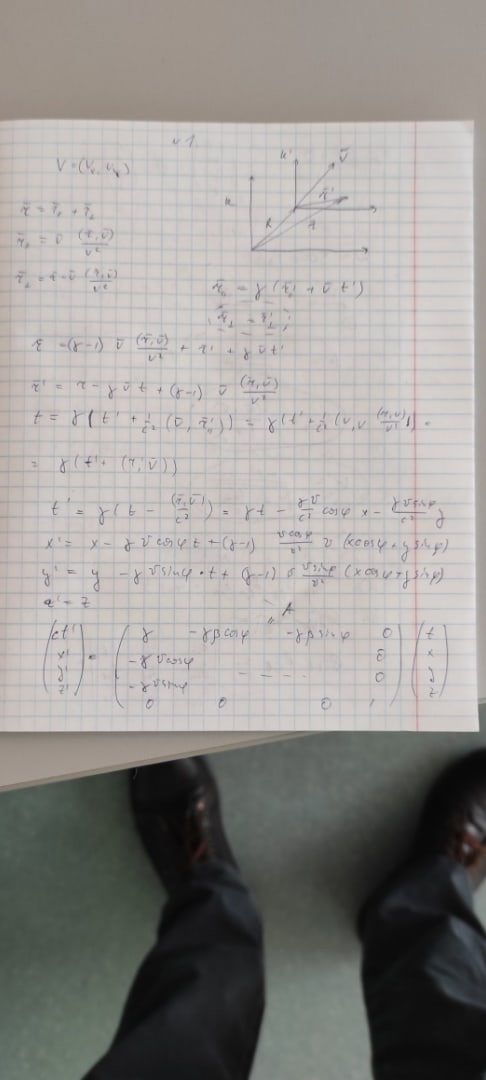 №1.
V = (Vx, Vy)
K K' v̄
R r̄ r̄'
r̄ = r̄₁ + r̄₂
r̄₁ = v̄ (r̄,v̄)/v²
r̄₂ = r̄ - v̄ (r̄,v̄)/v²
r̄₁ = γ(r̄₁' + v̄ t')
r̄₂ = r̄₂'
r = (γ-1) v̄ (r̄,v̄)/v² + r' + γ v̄ t'
r̄' = r - γ v̄ t + (γ-1) v̄ (r̄,v̄)/v²
t = γ(t' + 1/c² (v̄, r̄₁')) = γ(t' +
= γ(t' + (r̄,v̄))
t' = γ(t - (r̄,v̄)/c²) = γt - γv/c² cosφ x - γv sinφ/c² y
x' = x - γ v cosφ t + (γ-1) v cosφ/v² v (x cosφ + y sinφ)
y' = y - γ v sinφ · t + (γ-1) v v sinφ/v² (x cosφ + y sinφ)
z' = z
A
(ct' x' y' z') = (γ -γβcosφ -γβsinφ 0
-γ v cosφ 0
-γ v sinφ - - - - 0
0 0 0 1) (t x y z)